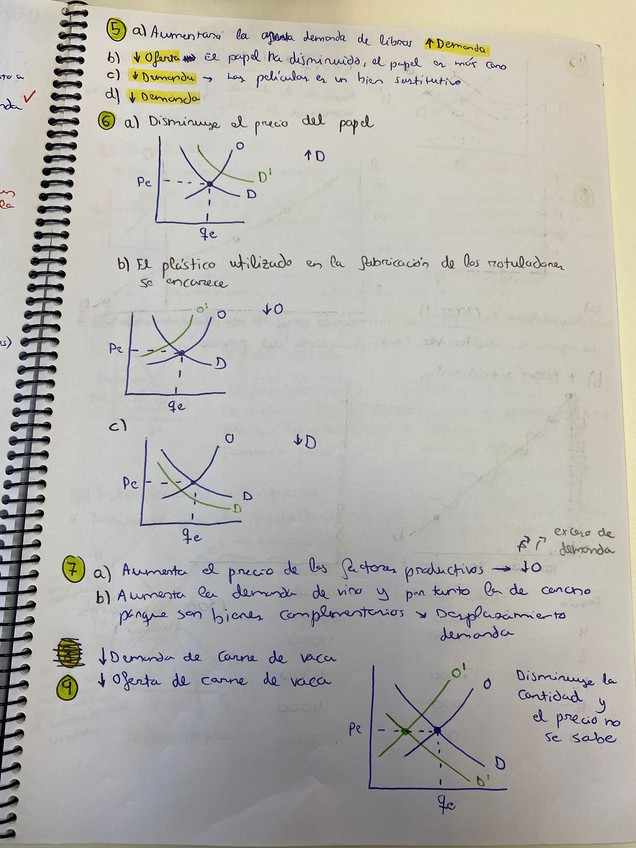 5 a) Aumentará la demanda de libros ↑ Demanda
b) ↓ Oferta → El papel ha disminuido, el papel es más caro
c) ↓ Demanda → Las películas es un bien sustitutivo
d) ↓ Demanda
6 a) Disminuye el precio del papel
O
↑D
Pe
D'
D
qe
b) El plástico utilizado en la fabricación de los rotuladores
se encarece
O'
O
↓O
Pe
D
qe
c)
O
↓D
Pe
D
D
qe
exceso de
demanda
7 a) Aumenta el precio de los factores productivos → ↓O
b) Aumenta la demanda de vino y por tanto la de
porque son bienes complementarios → Desplazamiento
demanda
↓Demanda de carne de vaca
9 ↓ Oferta de carne de vaca
O'
O
Disminuye la
cantidad y
el precio no
se sabe
Pe
D
D'
qe